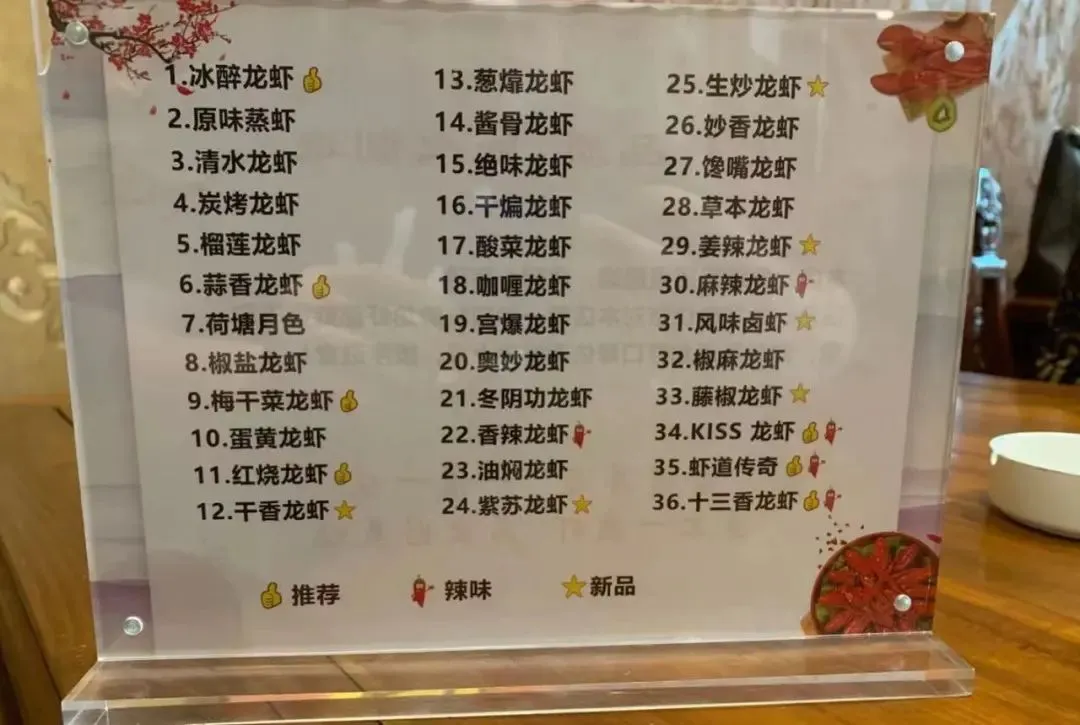 1.冰醉龙虾
2.原味蒸虾
3.清水龙虾
4.炭烤龙虾
5.榴莲龙虾
6.蒜香龙虾
7.荷塘月色
8.椒盐龙虾
9.梅干菜龙虾
10.蛋黄龙虾
11.红烧龙虾
12.干香龙虾
13.葱㸆龙虾
14.酱骨龙虾
15.绝味龙虾
16.干煸龙虾
17.酸菜龙虾
18.咖喱龙虾
19.宫爆龙虾
20.奥妙龙虾
21.冬阴功龙虾
22.香辣龙虾
23.油焖龙虾
24.紫苏龙虾
25.生炒龙虾
26.妙香龙虾
27.馋嘴龙虾
28.草本龙虾
29.姜辣龙虾
30.麻辣龙虾
31.风味卤虾
32.椒麻龙虾
33.藤椒龙虾
34.KISS 龙虾
35.虾道传奇
36.十三香龙虾
推荐
辣味
新品